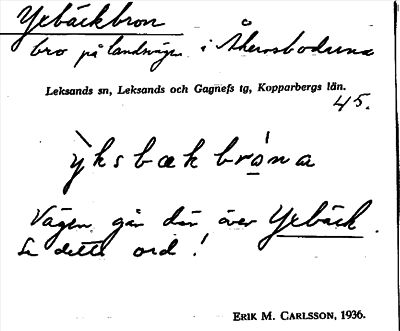 Yxbäckbron
bro på landsvägen i Åkersbodarna
Leksands sn, Leksands och Gagnefs tg, Kopparbergs län.
45.
ỳksbækbróna
Vägen går där över Yxbäck.
Se detta ord!
ERIK M. CARLSSON, 1936.